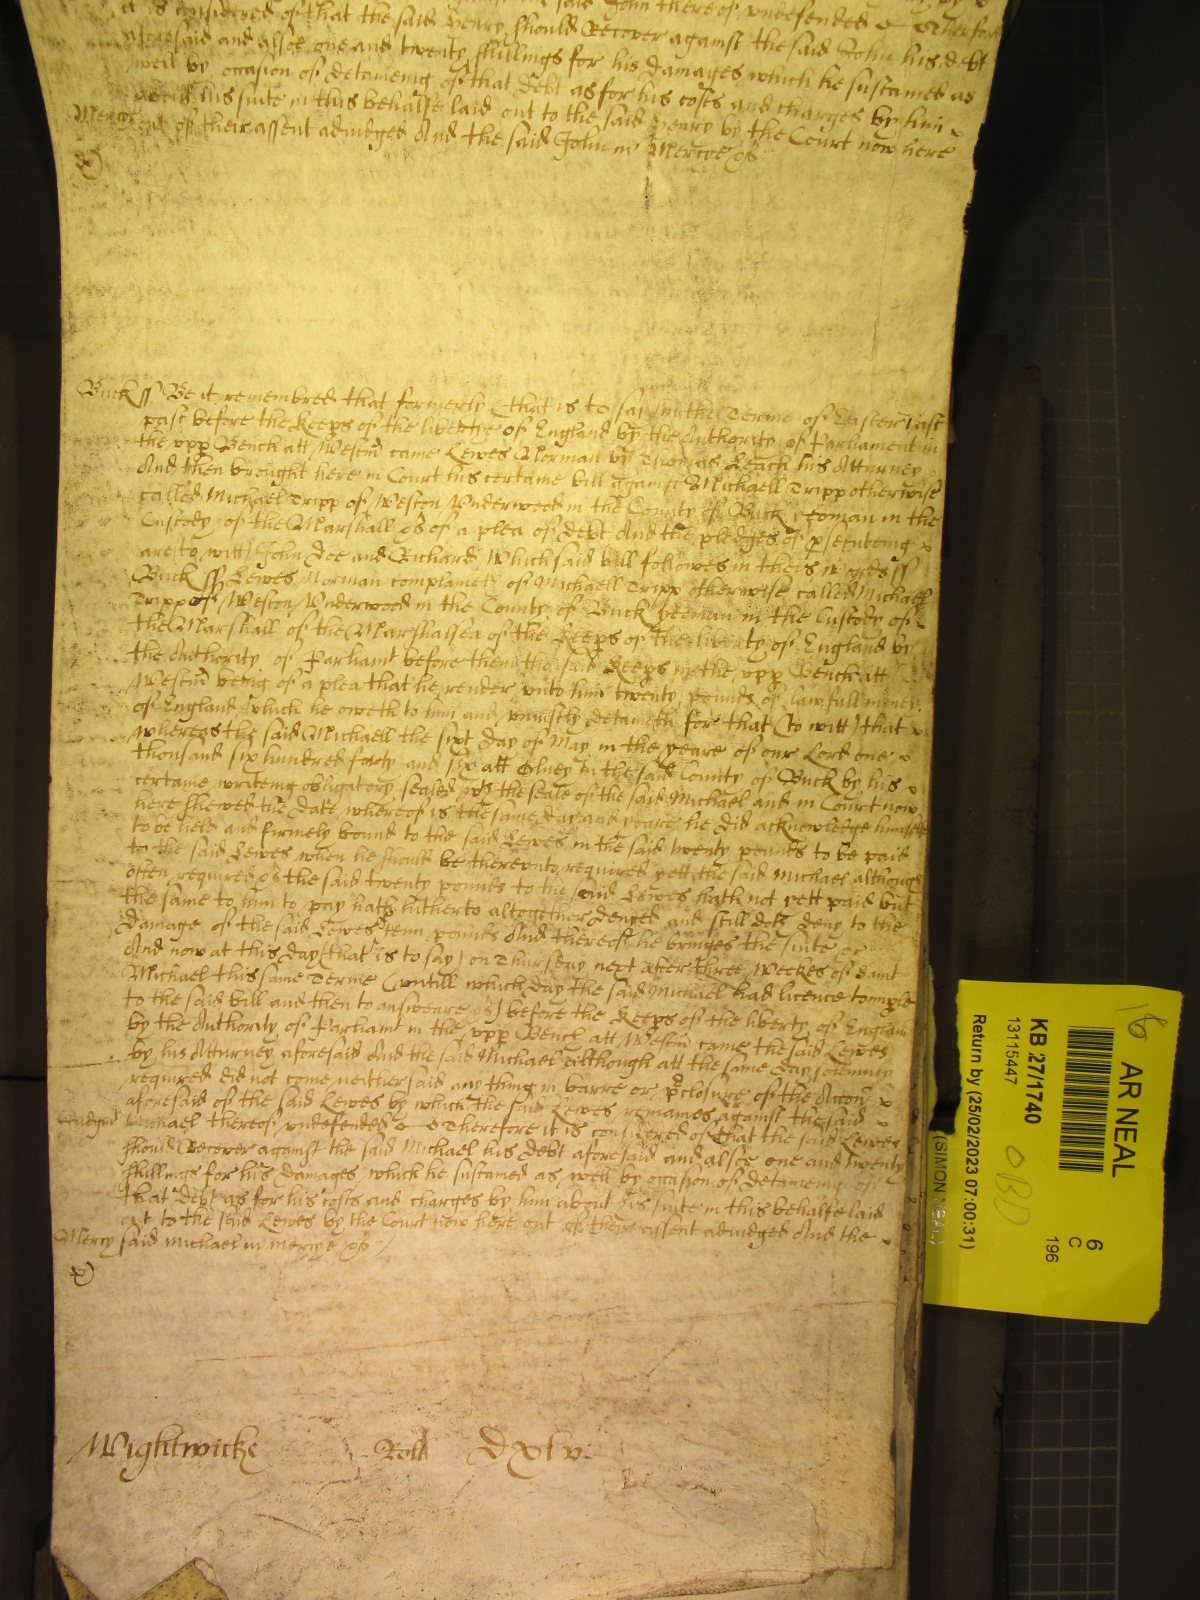 it is considered of that the said Henry should Recover against the said John his debt
aforesaid and alsoe one and twenty shillings for his damages which he susteined as
well by occasion of deteineing of that debt as for his costs and charges by him
about his suite in this behalfe laid out to the said Henry by the Court now here
out of their assent adiudged And the said John in Mercye &c
Buck ss Be it remembred that formerly (that is to say) in the Terme of Easter last
past before the Keeps of the libertie of England by the Authority of Parliament in
the upp Bench att Westm came Lewes Norman by Thomas Leach his Atturney
And then brought here in Court his certaine bill against Michaell Tripp otherwise
called Michael Tripp of Weston Underwood in the County of Buck yeoman in the
Custody of the Marshall &c of a plea of debt And the pledges of psecuteing
are to witt John Doe and Richard Which said bill followes in theis words ss
Buck ss Lewes Norman complaineth of Michaell Tripp otherwise called Michael
Tripp of Weston Underwood in the County of Buck yeoman in the Custody of
the Marshall of the Marshalsea of the Keeps of the liberty of England by
the Authority of Parliamt before them the said Keeps in the upp Bench att
Westm being of a plea that he render unto him twenty pounds of lawfull money
of England which he oweth to him and uniustly deteineth for that (to witt) that
whereas the said Michaell the sixt day of May in the yeare of our Lord one
thousand six hundred forty and six att Olney in the said County of Buck by his
certaine writeing obligatory sealed wth the seale of the said Michael and in Court now
here shewed the date whereof is the same day and yeare he did acknowledge himselfe
to be held and firmely bound to the said Lewes in the said twenty pounds to be paid
to the said Lewes when he should be thereunto required yett the said Michael although
often required &c the said twenty pounds to the said Lewes hath not yett paid but
the same to him to pay hath hitherto altogether denyed and still doth deny to the
damage of the said Lewes tenn pounds And thereof he bringes the suite &c
And now at this day (that is to say) on Thursday next after three Weekes of Saint
Michael this same Terme (untill which day the said Michael had licence to imple
to the said bill and then to answeare &c) before the Keeps of the liberty of England
by the Authority of Parliamt in the upp Bench att Westm came the said Lewes
by his Atturney aforesaid And the said Michael although att the same day solemnly
required did not come neither said any thing in barre or pclosure of the Accon
aforesaid of the said Lewes by which the said Lewes remaines against the said
Michael thereof undefended Therefore it is considered of that the said Lewes
should Recover against the said Michael his debt aforesaid and alsoe one and twenty
shillings for his damages which he susteined as well by occasion of deteineing of
that debt as for his costs and charges by him about his suite in this behalfe laid
out to the said Lewes by the Court now here out of theire assent adiudged And the
Mercy said Michael in mercye &c
Wightwicke Roll Dxlv
18
AR NEAL
KB 27/1740
13115447
Return by (25/02/2023 07:00:31)
6
C
196